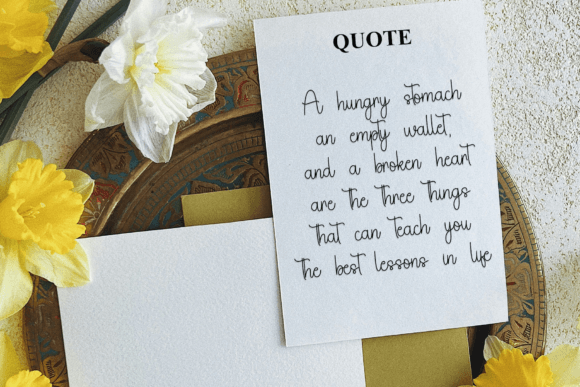 QUOTE
A hungry stomach
an empty wallet,
and a broken heart
are the three things
that can teach you
the best lessons in life